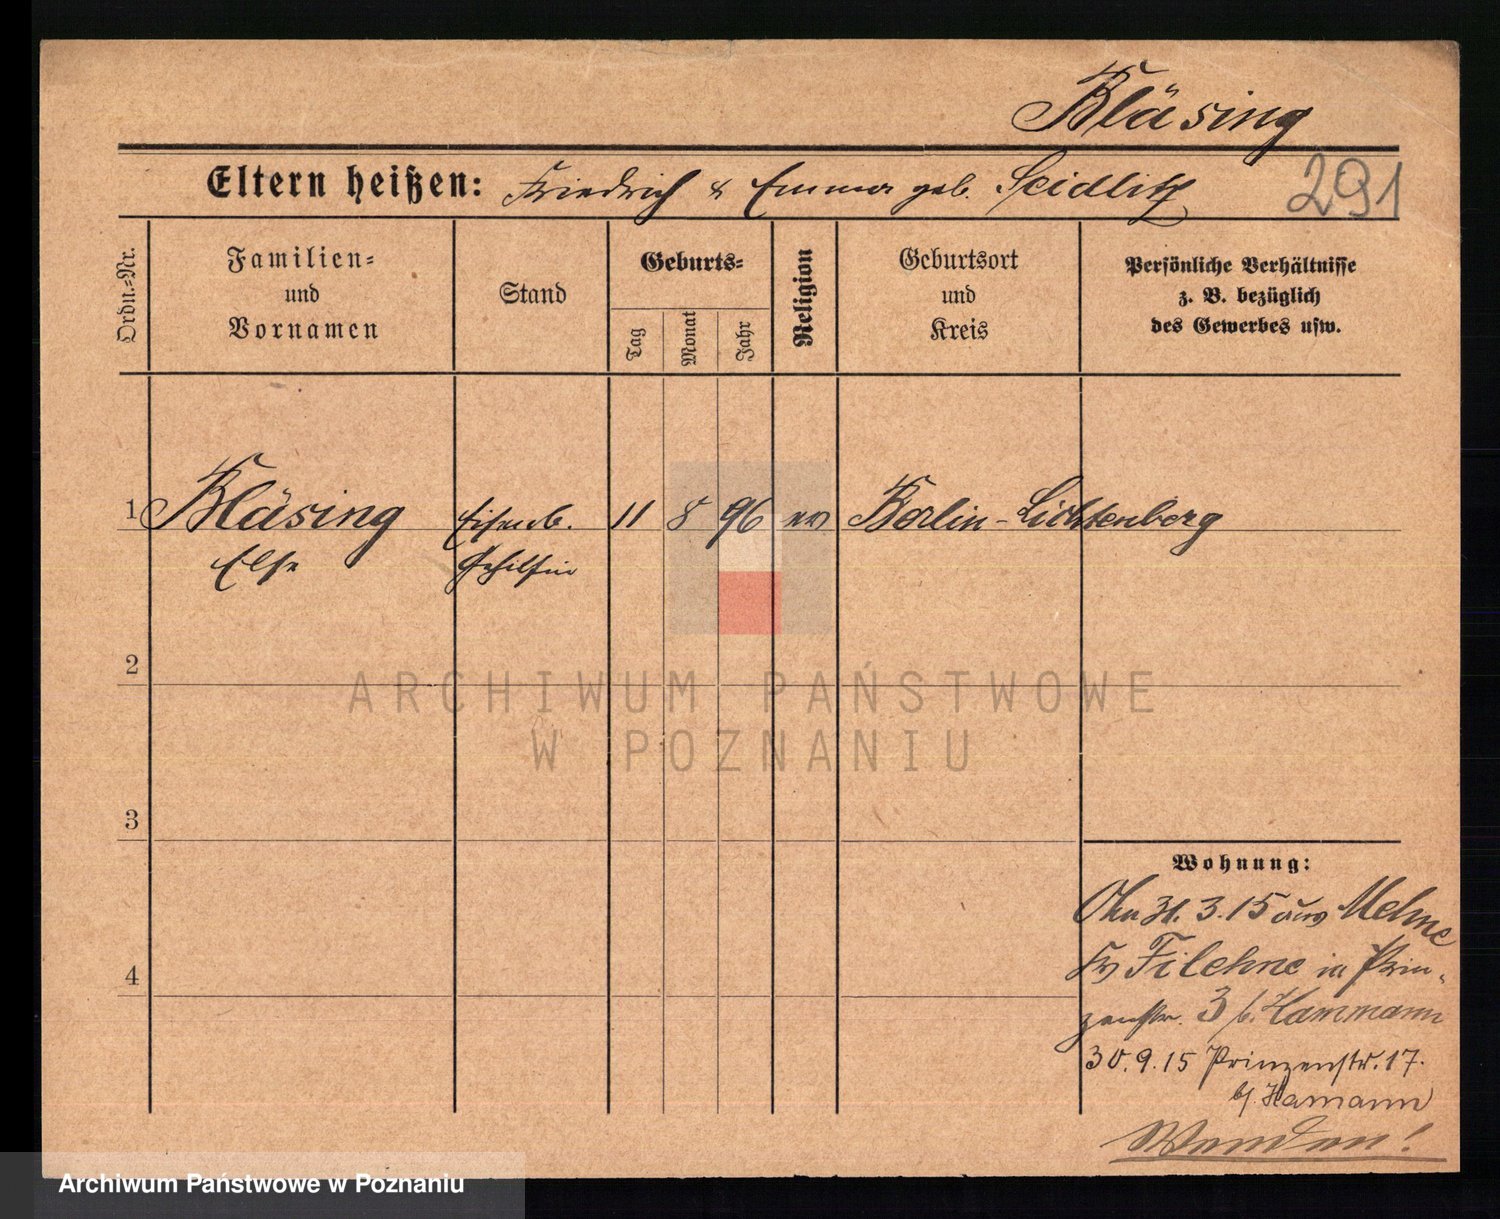 Bläsing
Eltern heißen: Friedrich & Emma geb. Seidlitz
291
Ordn.-Nr.
Familien-
und
Vornamen
Stand
Geburts-
Tag
Monat
Jahr
Religion
Geburtsort
und
Kreis
Persönliche Verhältnisse
z. B. bezüglich
des Gewerbes usw.
1 Bläsing Eisenb. 11 8 96 ev Berlin-Lichtenberg
Else Gehilfin
2
3
4
Wohnung:
31.3.15 aus Mehne
Filehne in Prin-
zenstr. 3 b. Hammann
30.9.15 Prinzenstr. 17.
b/ Hamann
Wenden!
ARCHIWUM PAŃSTWOWE
W POZNANIU
Archiwum Państwowe w Poznaniu